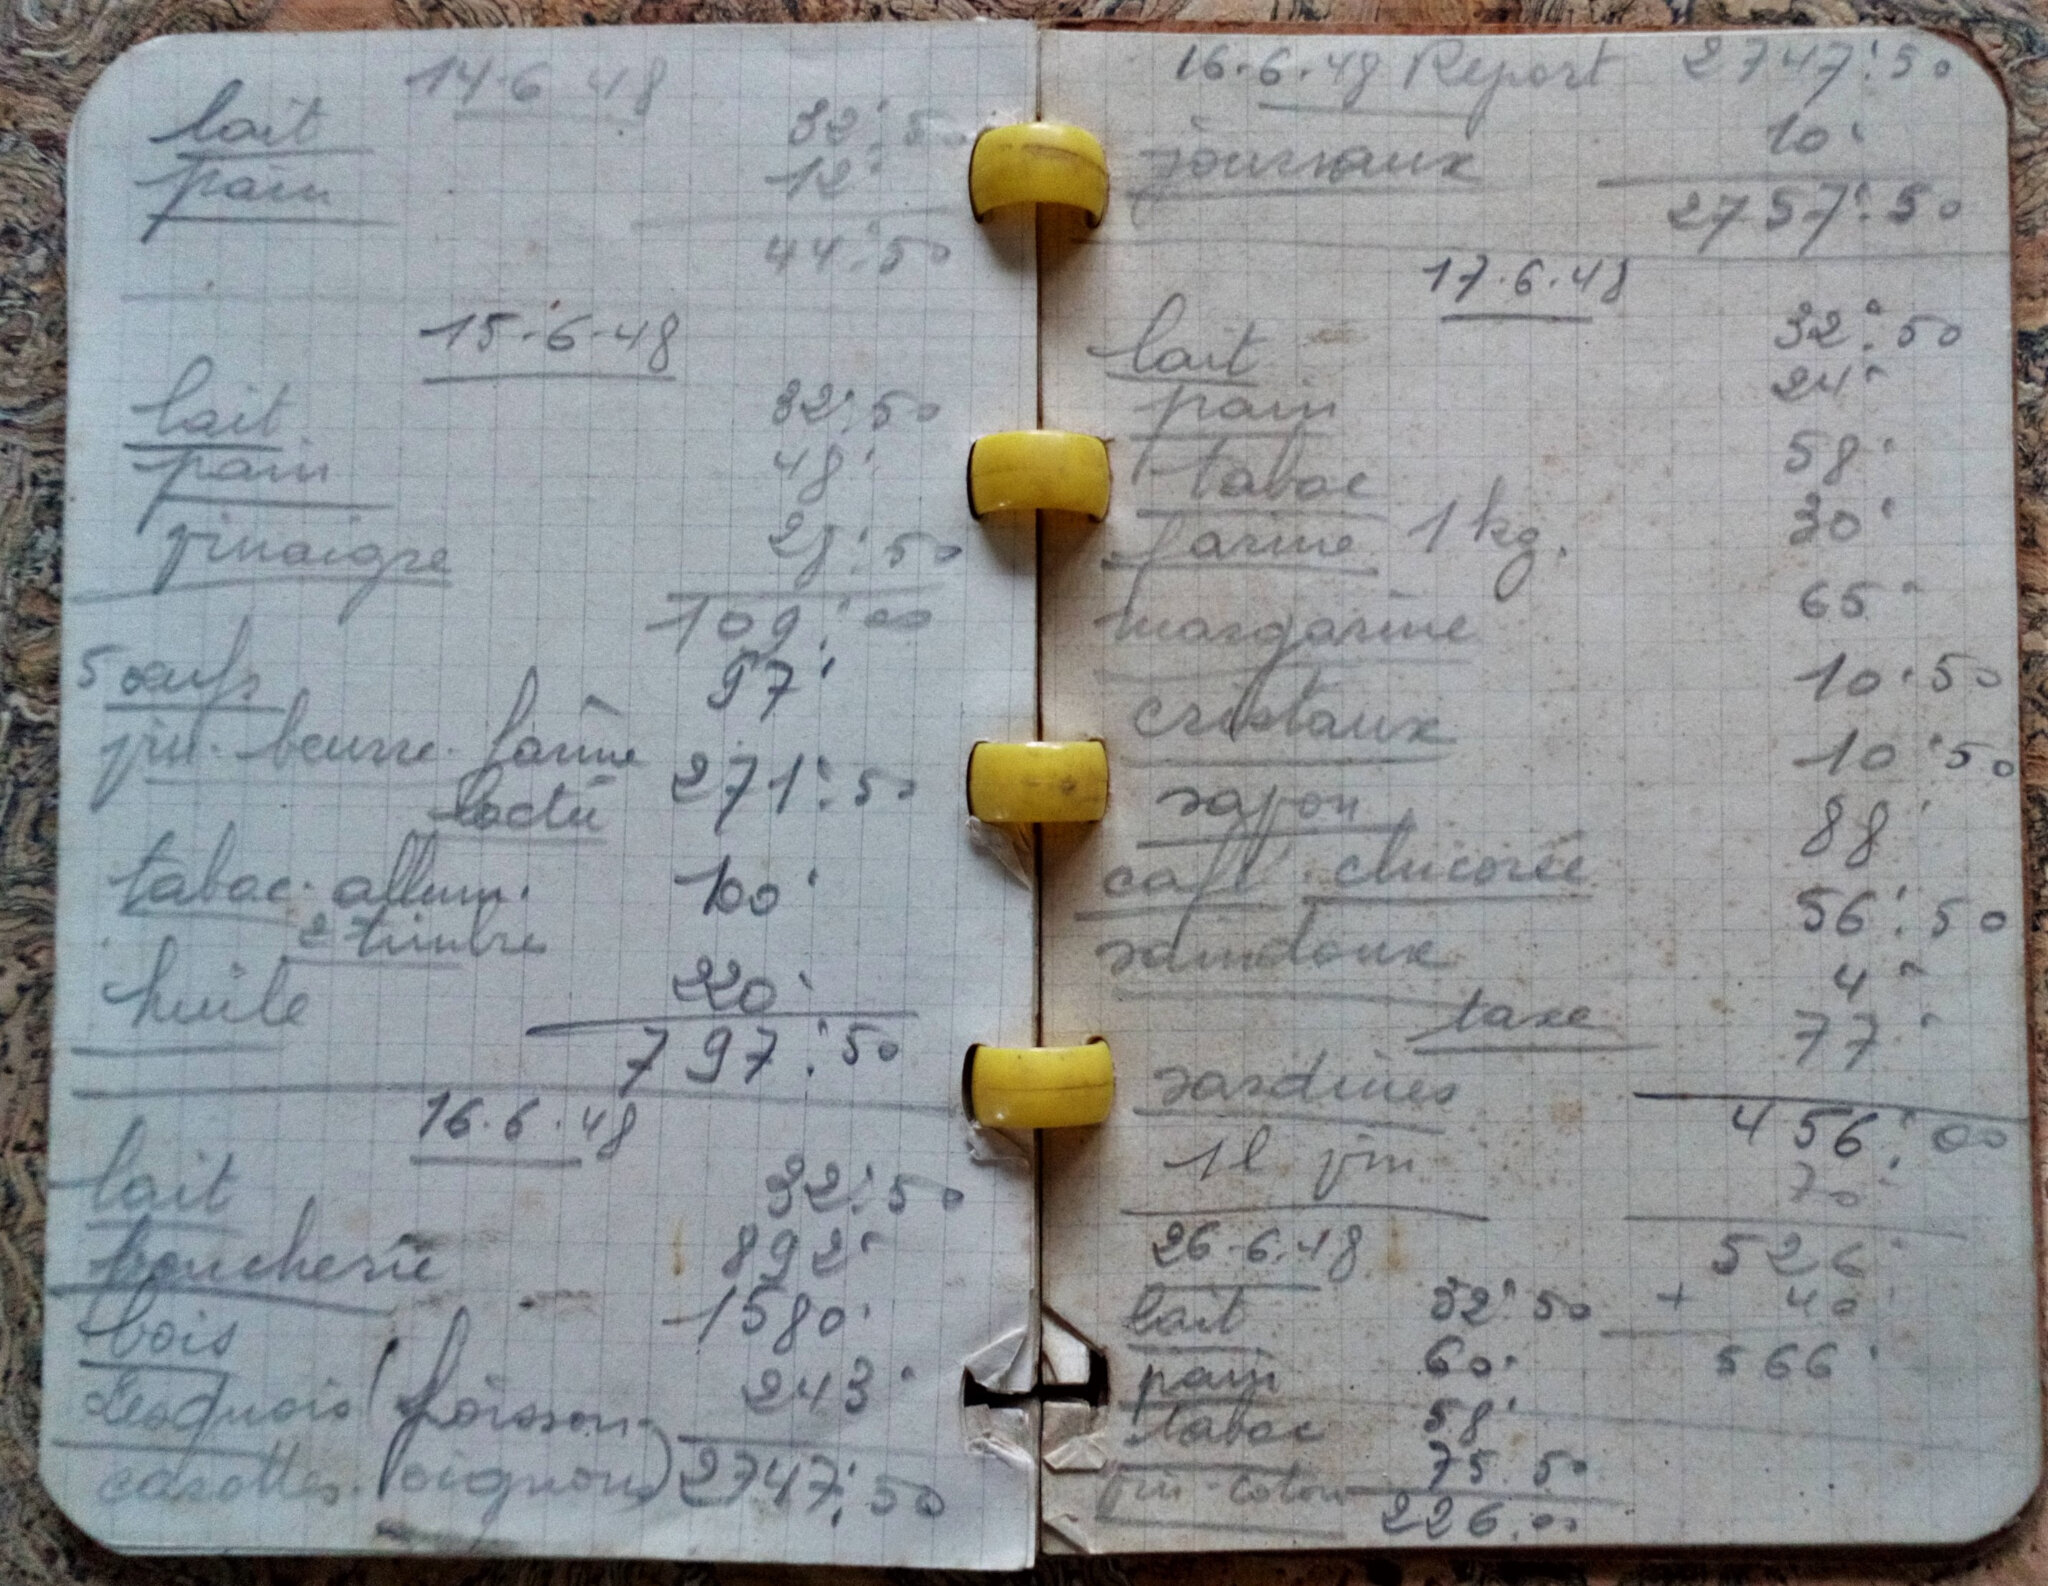 14.6 48
lait 32:50
pain 12
44:50
15.6.48
lait 32:50
pain 48
vinaigre 28:50
109:00
5 oeufs 97
vin. beurre. farine
lactée 271:50
tabac. allum. 100
2 timbre
huile 220
797:50
16.6.48
lait 32:50
boucherie 892
bois 1580
(poisson 243
carottes. oignons) 2747:50
16.6.48 Report 2747:50
journaux 10
2757:50
17.6.48
lait 32:50
pain 24
tabac 58
farine 1 kg. 30
margarine 65
cristaux 10.50
savon 10:50
café chicorée 88
saindoux 56:50
taxe 4
sardines 77
456:00
1 l vin 70
26.6.48 526
lait 32:50 + 40
pain 60 566
tabac 58
vin. coton 75.50
226.00